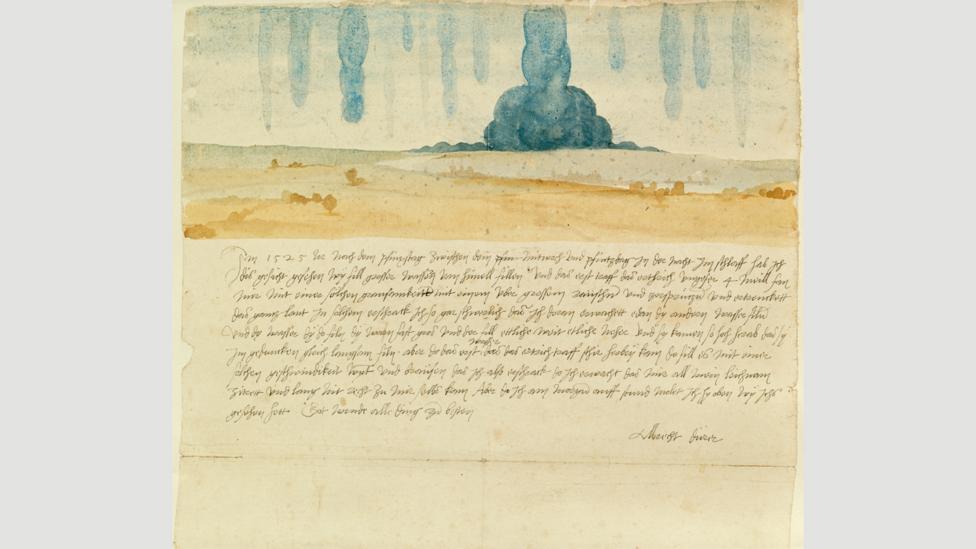 Im 1525 Jor nach dem pfinxstag zwischen dem mitwoch und pfintzdag in der nacht im schlaff hab ich
dis gesicht gesehen wy fill grosser wassern vom himell fillen und das erst traff das erthrich ungefer 4 meill fan
mir mit einer solchen grausamkeitt mit einem uber grossem raüschn und zersprützn und ertrenckett
das gannz lant In solchem erschrack ich so gar schwerlich das ich doran erwachett edan dy andern wasser filn
und dy wasser dy do filn dy warn fast gros und der fill ettliche weit etliche neher und sy kamen so hoch herab das sy
im gedancken gleich langsam filn aber do das erst wasser das das ertrich traff schir herbey kam do fill es mit einer
solchen geschwindikeit wynt und braüsen das ich also erschrack do ich erwacht das mir all mein leichnam
zitrett und lang nit recht zu mir selbs kam Aber do ich am morgen auff stund molet ich hy oben wy ichs
gesehen hett Got wende alle ding zu besten
Albrecht dürer